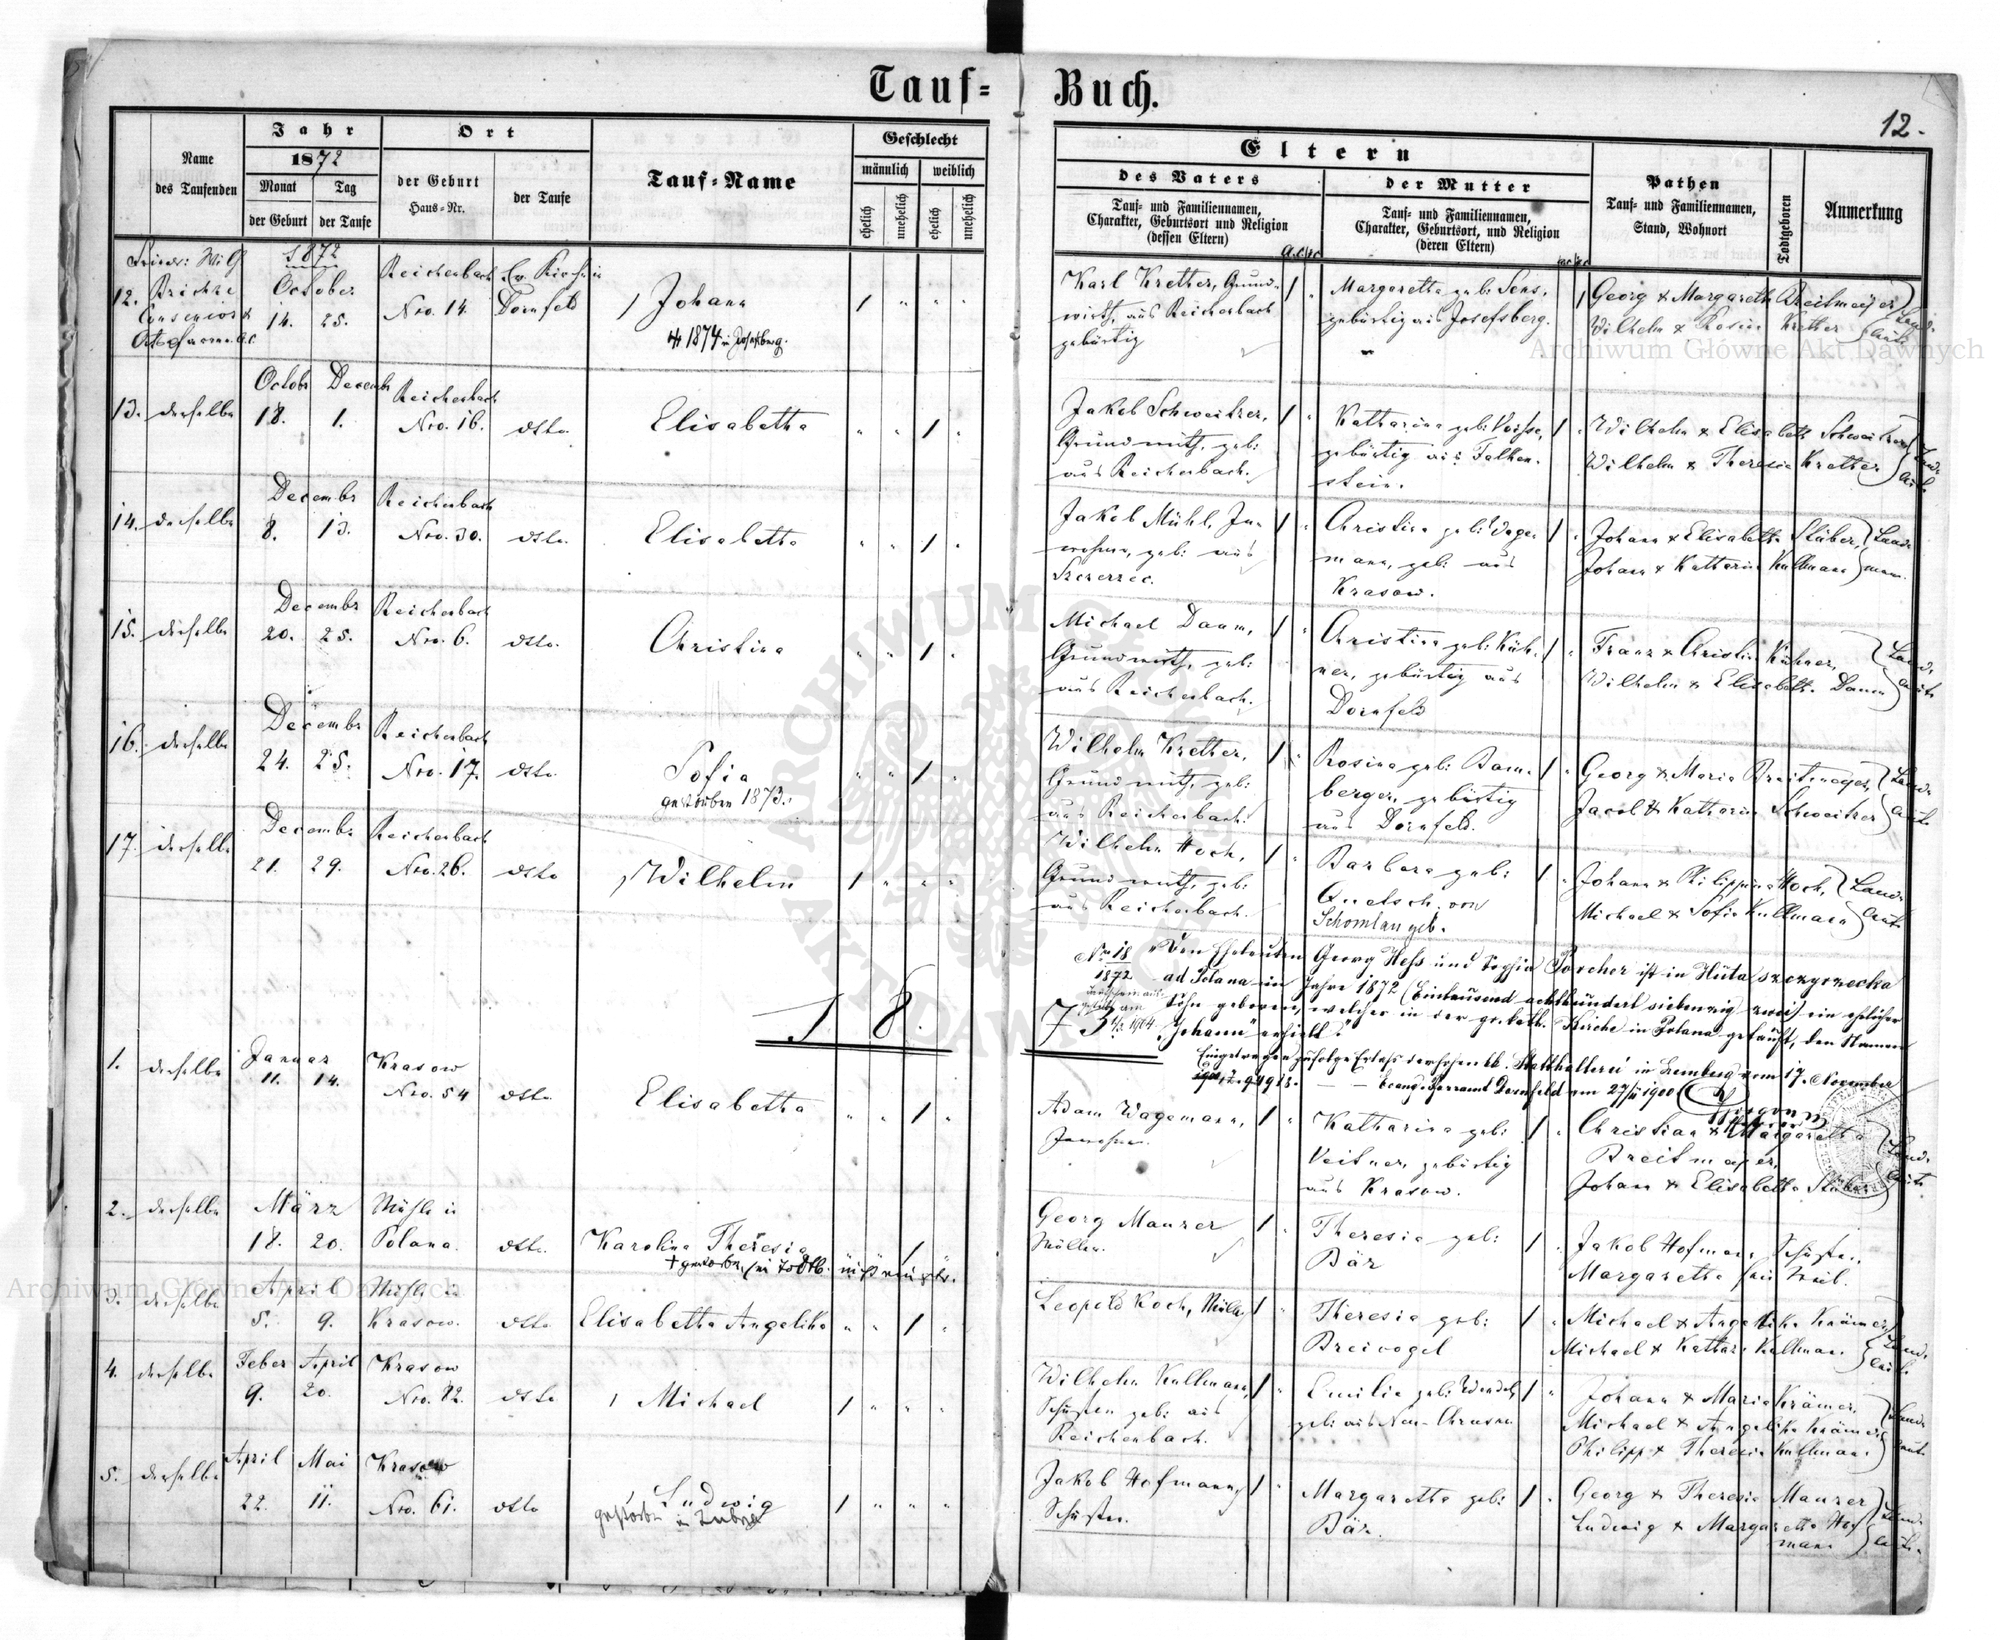 Tauf= Buch.
12.
Name des Taufenden
Jahr
1872
Monat der Geburt
Tag der Taufe
Ort
der Geburt
Haus=Nr.
der Taufe
Tauf=Name
Geschlecht
männlich weiblich
ehelich unehelich ehelich unehelich
Eltern
des Vaters
Tauf= und Familiennamen,
Charakter, Geburtsort und Religion
(dessen Eltern)
der Mutter
Tauf= und Familiennamen,
Charakter, Geburtsort, und Religion
(deren Eltern)
Pathen
Tauf= und Familiennamen,
Stand, Wohnort
Todtgeboren
Anmerkung
1872
12. October Reichenbach Ev. Kirche in
14. 25. Nro. 14. Dornfeld Johann 1
1874 in Josefsberg.
Karl Kretter, Grund-
wirth, aus Reichenbach
gebürtig
Margaretha geb: Sens,
gebürtig aus Josefsberg.
Georg & Margareth Breitmayer
Wilhelm & Rosina Kretter
13. derselbe Octobr Decembr Reichenbach
18. 1. Nro. 16. dtto. Elisabetha 1
Jakob Schweitzer,
Grundwirth, geb:
aus Reichenbach.
Katharina geb:
gebürtig aus Falken-
stein.
Wilhelm & Elisabeth Schweitzer
Wilhelm & Theresia Kretter
14. derselbe Decembr Reichenbach
8. 13. Nro. 30. dtto. Elisabetha 1
Jakob Mühl, In-
wohner, geb: aus
Szczerzec.
Christina geb: Wage-
mann, geb: aus
Krasow.
Johann & Elisabetha Stüber,
Johann & Katharin Kullmann
15. derselbe Decembr Reichenbach
20. 25. Nro. 6. dtto. Christina 1
Michael Daum,
Grundwirth, geb:
aus Reichenbach.
Christina geb: Küh-
ner, gebürtig aus
Dornfeld
Franz & Christin Kühner,
Wilhelm & Elisabeth Daum
16. derselbe Decembr Reichenbach
24. 25. Nro. 17. dtto. Sofia 1
gestorben 1873.
Wilhelm Kretter,
Grundwirth, geb:
aus Reichenbach.
Rosina geb: Bam-
berger, gebürtig
aus Dornfeld.
Georg & Maria Breitmayer,
Jacob & Katharin Schweitzer
17. derselbe Decembr Reichenbach
21. 29. Nro. 26. dtto Wilhelm 1
Wilhelm Hoch,
Grundwirth, geb:
aus Reichenbach.
Barbara geb:
Quetsch, von
Schomlau geb.
Johann & Philippina Hoch,
Michael & Sofia Kullmann
No 18
1872
Den Eheleuten Georg Hess und Sophia Porcher ist in Huta szczyrzecka
ad Polana im Jahre 1872 (Eintausend achthundert siebenzig zwei) ein ehelicher
Sohn geboren, welcher in der gr. kath. Kirche in Polana getauft, den Namen
"Johann" erhielt.
Eingetragen zufolge Erlass der hohen kk. Statthalterei in Lemberg vom 17. November
1900 Evang. Pfarramt Dornfeld am 27/11 1900
1 8.
7 3
1. derselbe Januar Krasow
11. 14. Nro. 54 dtto. Elisabetha 1
Adam Wagemann,
Inwohner.
Katharina geb:
Veitner, gebürtig
aus Krasow.
Christian & Margaretha
Breitmayer,
Johann & Elisabetha Stüber
2. derselbe März Mühle in
18. 20. Polana. dtto. Karolina Theresia 1
Georg Maurer
Müller.
Theresia geb:
Bär
Jakob Hofmann Schuster,
Margaretha sein Weib.
3. derselbe April Mühle in
5. 9. Krasow. dtto Elisabetha Angelika 1
Leopold Koch, Müller
Theresia geb:
Breivogel
Michael & Angelika Krämer
Michael & Kathar. Kullmann
4. derselbe Feber April Krasow
9. 20. Nro. 82. dtto Michael 1
Wilhelm Kullmann,
Schuster geb: aus
Reichenbach.
Emilia geb: Wendel,
geb: aus Neu-Chrusno
Johann & Maria Krämer,
Michael & Angelika Krämer
Philipp & Theresia Kullmann
5. derselbe April Mai Krasow
22. 11. Nro. 61. dtto Ludwig 1
Jakob Hofmann,
Schuster.
Margaretha geb:
Bär.
Georg & Theresia Maurer
Ludwig & Margaretha Hof-
mann
Archiwum Główne Akt Dawnych
Archiwum Główne Akt Dawnych